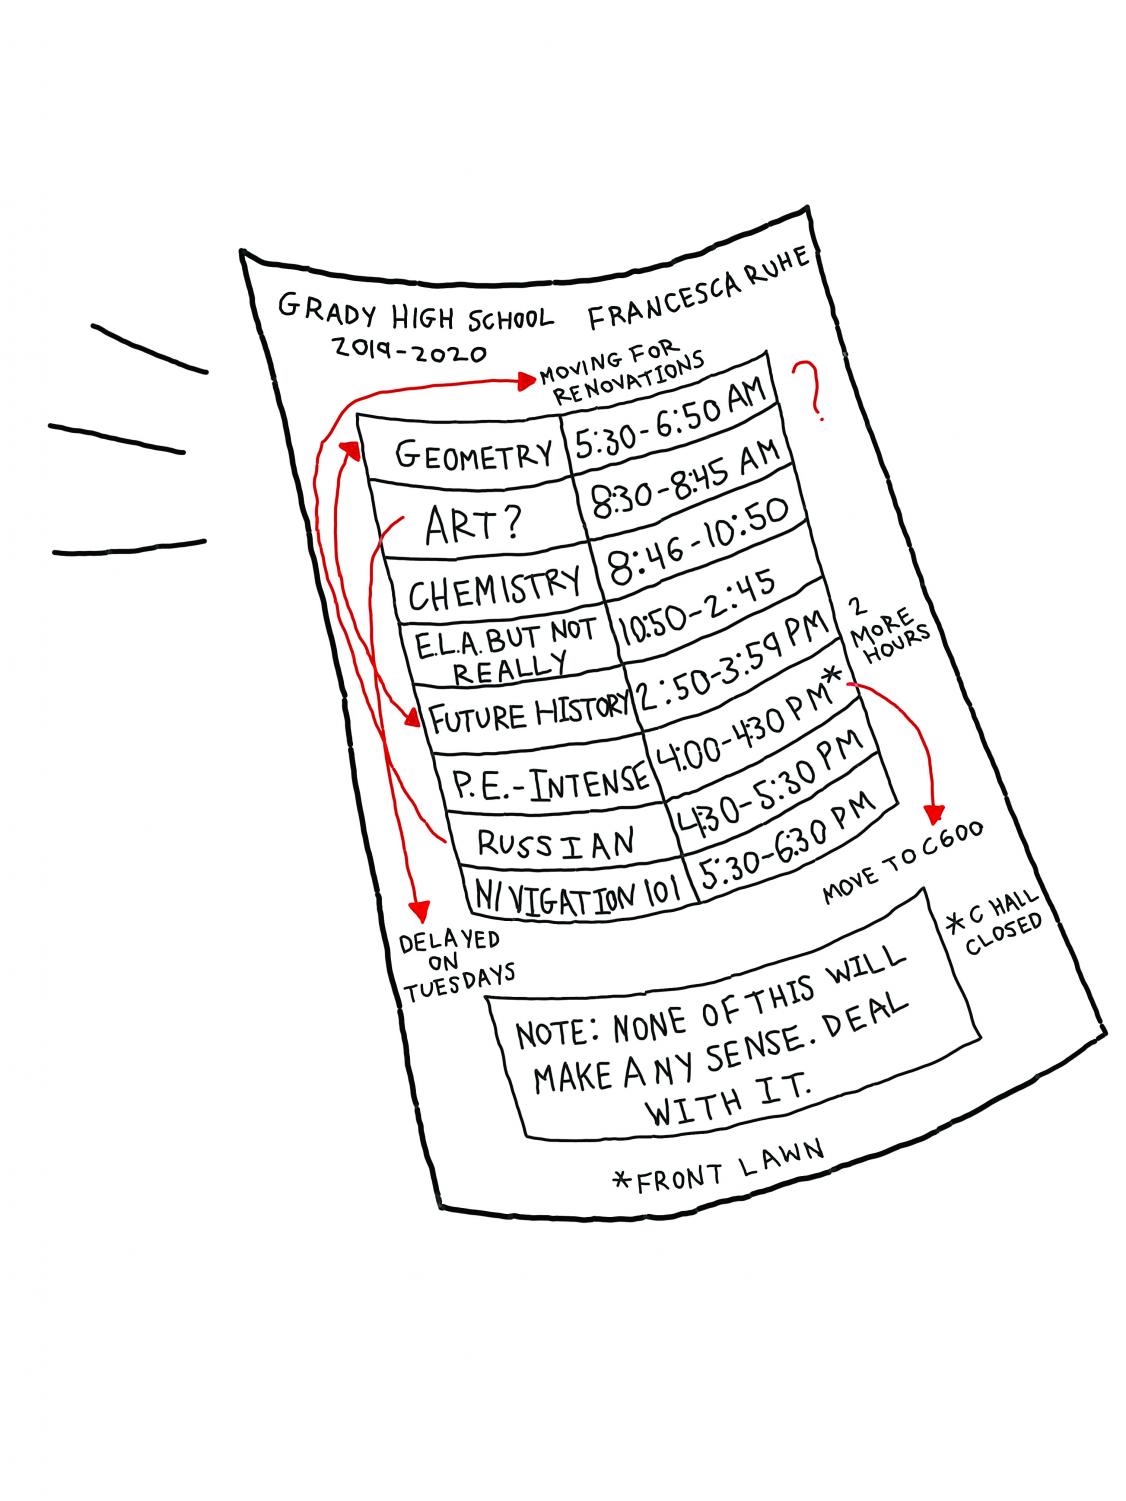 GRADY HIGH SCHOOL FRANCESCA RUHE
2019-2020
MOVING FOR
RENOVATIONS
?
GEOMETRY 5:30-6:50 AM
ART? 8:30-8:45 AM
CHEMISTRY 8:46-10:50
E.L.A. BUT NOT
REALLY 10:50-2:45
FUTURE HISTORY 2:50-3:59 PM
2
MORE
HOURS
P.E.-INTENSE 4:00-4:30 PM*
RUSSIAN 4:30-5:30 PM
NAVIGATION 101 5:30-6:30 PM
MOVE TO C600
*C HALL
CLOSED
DELAYED
ON
TUESDAYS
NOTE: NONE OF THIS WILL
MAKE ANY SENSE. DEAL
WITH IT.
*FRONT LAWN